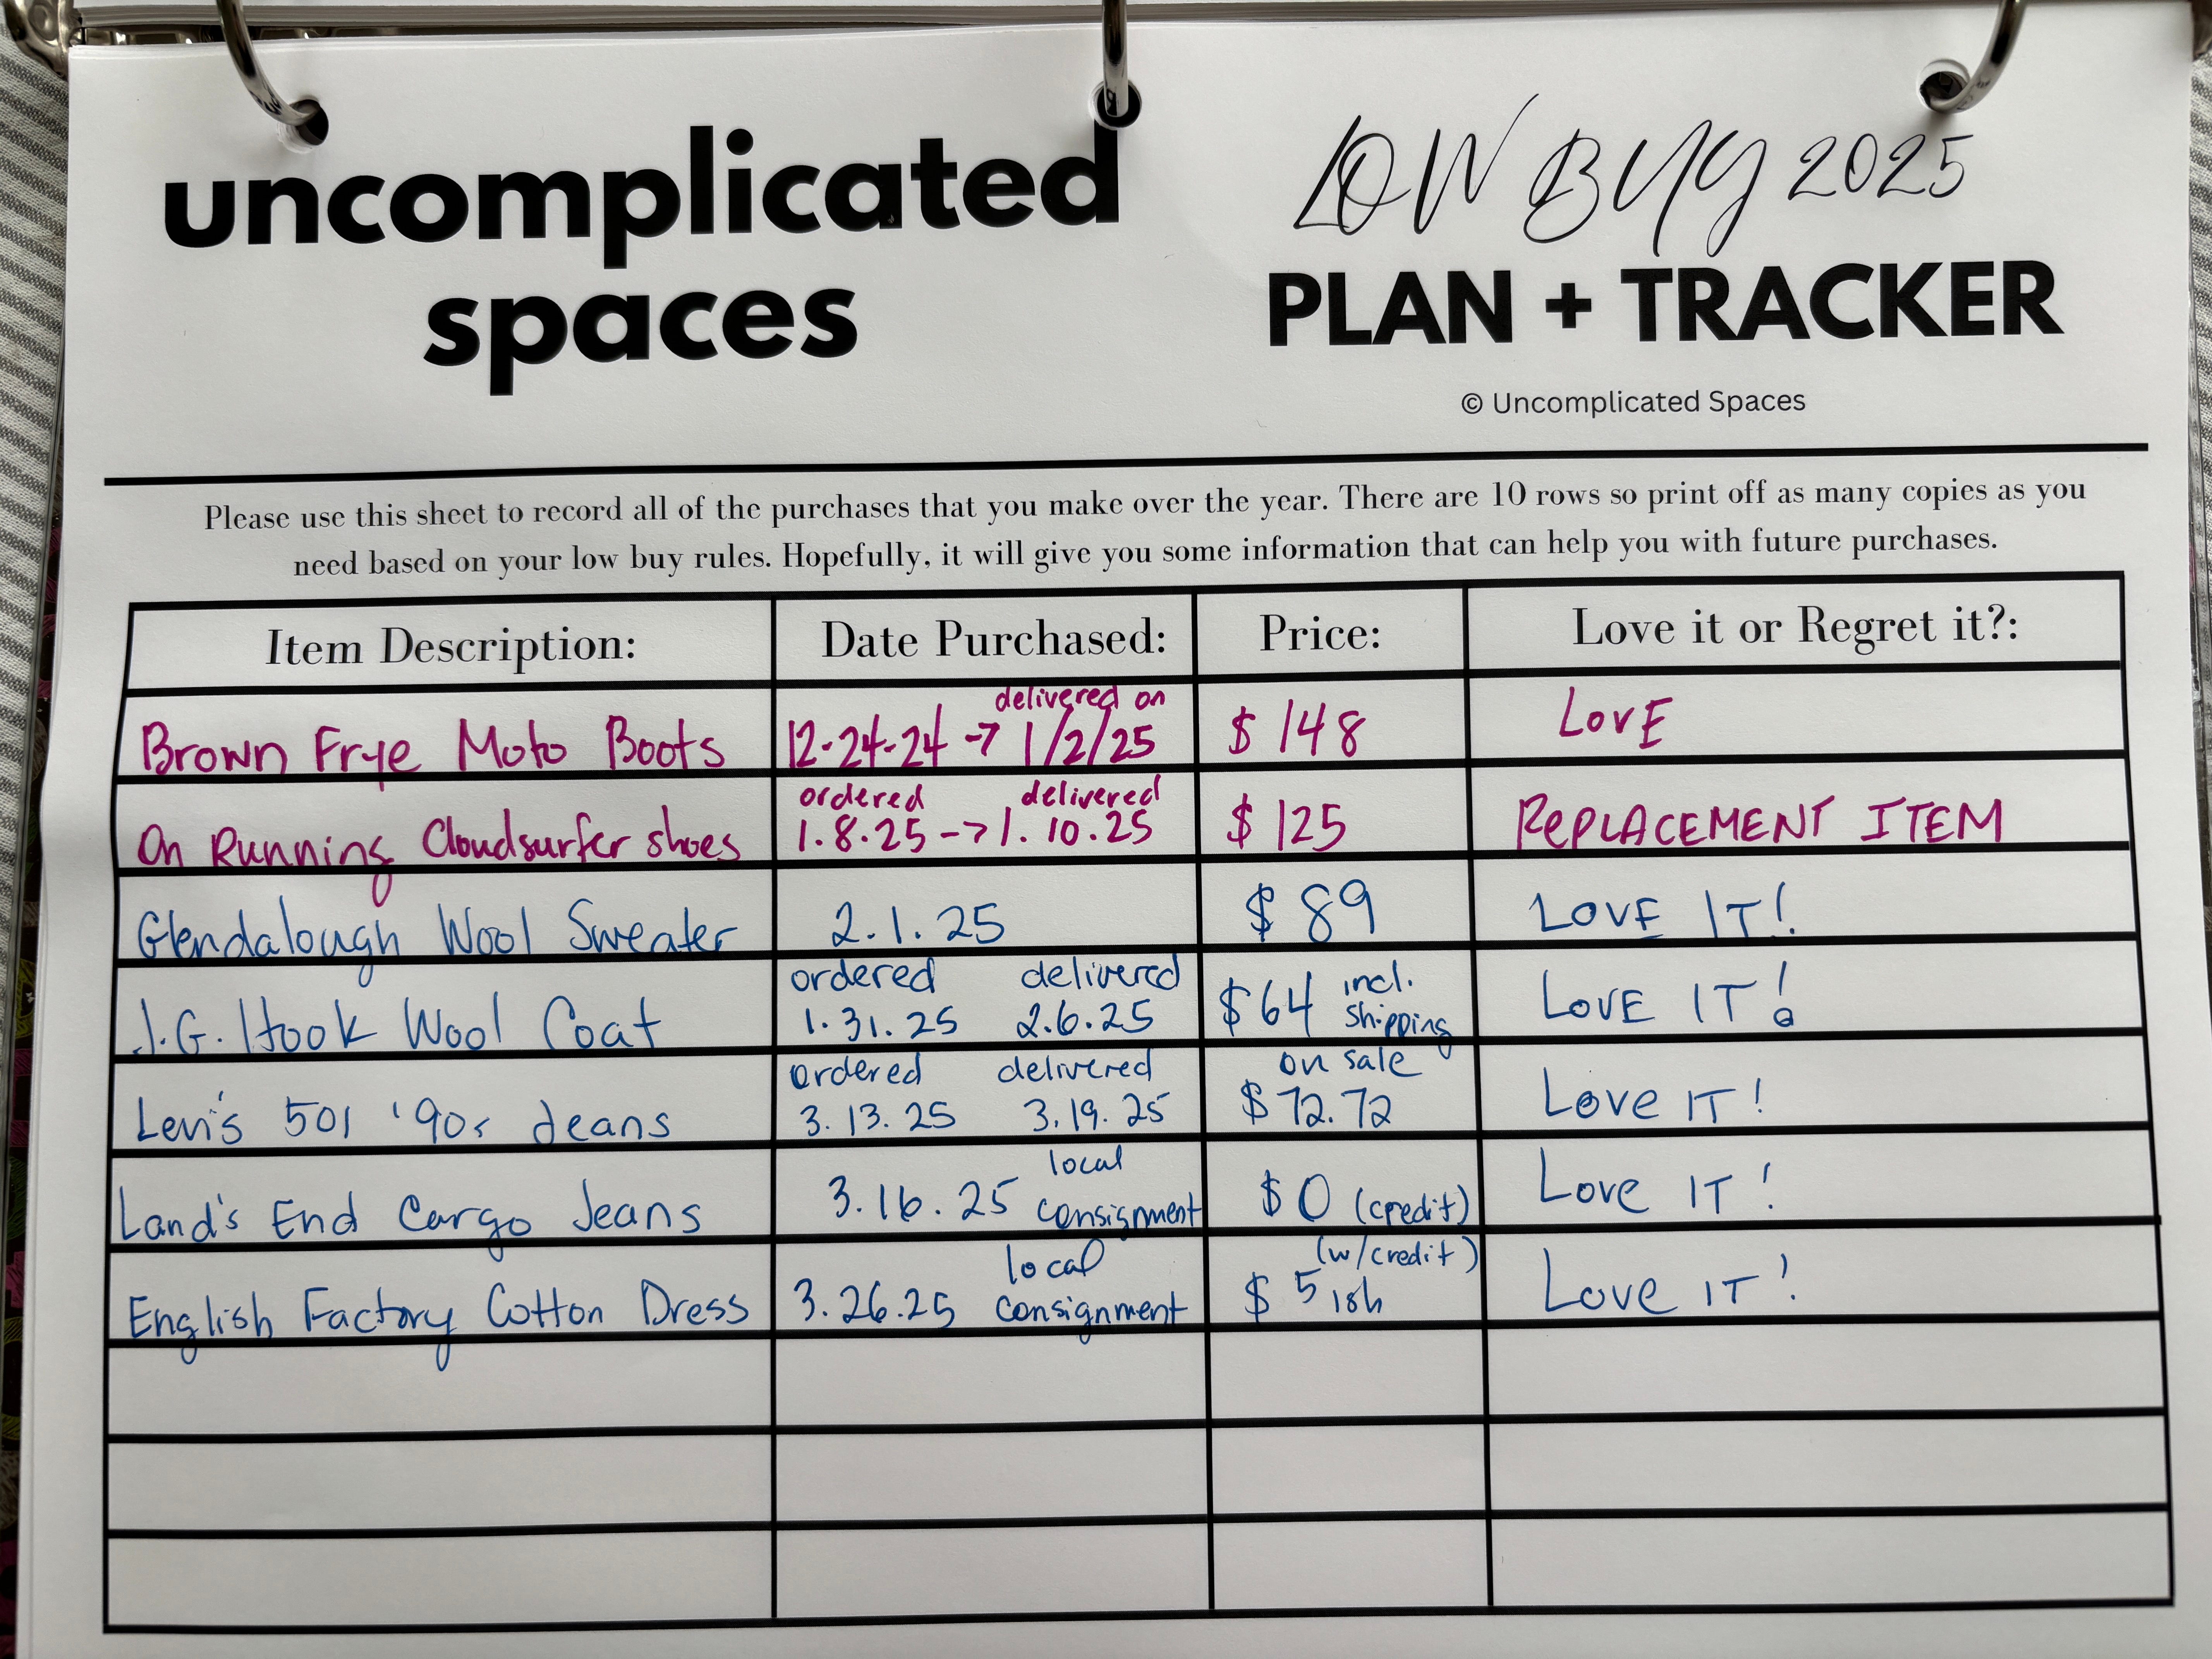 uncomplicated
spaces
LOW BUY 2025
PLAN + TRACKER
© Uncomplicated Spaces
Please use this sheet to record all of the purchases that you make over the year. There are 10 rows so print off as many copies as you
need based on your low buy rules. Hopefully, it will give you some information that can help you with future purchases.
Item Description: Date Purchased: Price: Love it or Regret it?:
delivered on
Brown Frye Moto Boots 12-24-24 → 1/2/25 $148 LOVE
ordered delivered
On Running Cloudsurfer shoes 1.8.25 → 1.10.25 $125 REPLACEMENT ITEM
Glendalough Wool Sweater 2.1.25 $89 LOVE IT!
ordered delivered incl.
J.G. Hook Wool Coat 1.31.25 2.6.25 $64 shipping LOVE IT!
ordered delivered on sale
Levi's 501 '90s Jeans 3.13.25 3.19.25 $72.72 Love IT!
local
Land's End Cargo Jeans 3.16.25 consignment $0 (credit) Love IT!
local (w/credit)
English Factory Cotton Dress 3.26.25 consignment $5ish Love IT!